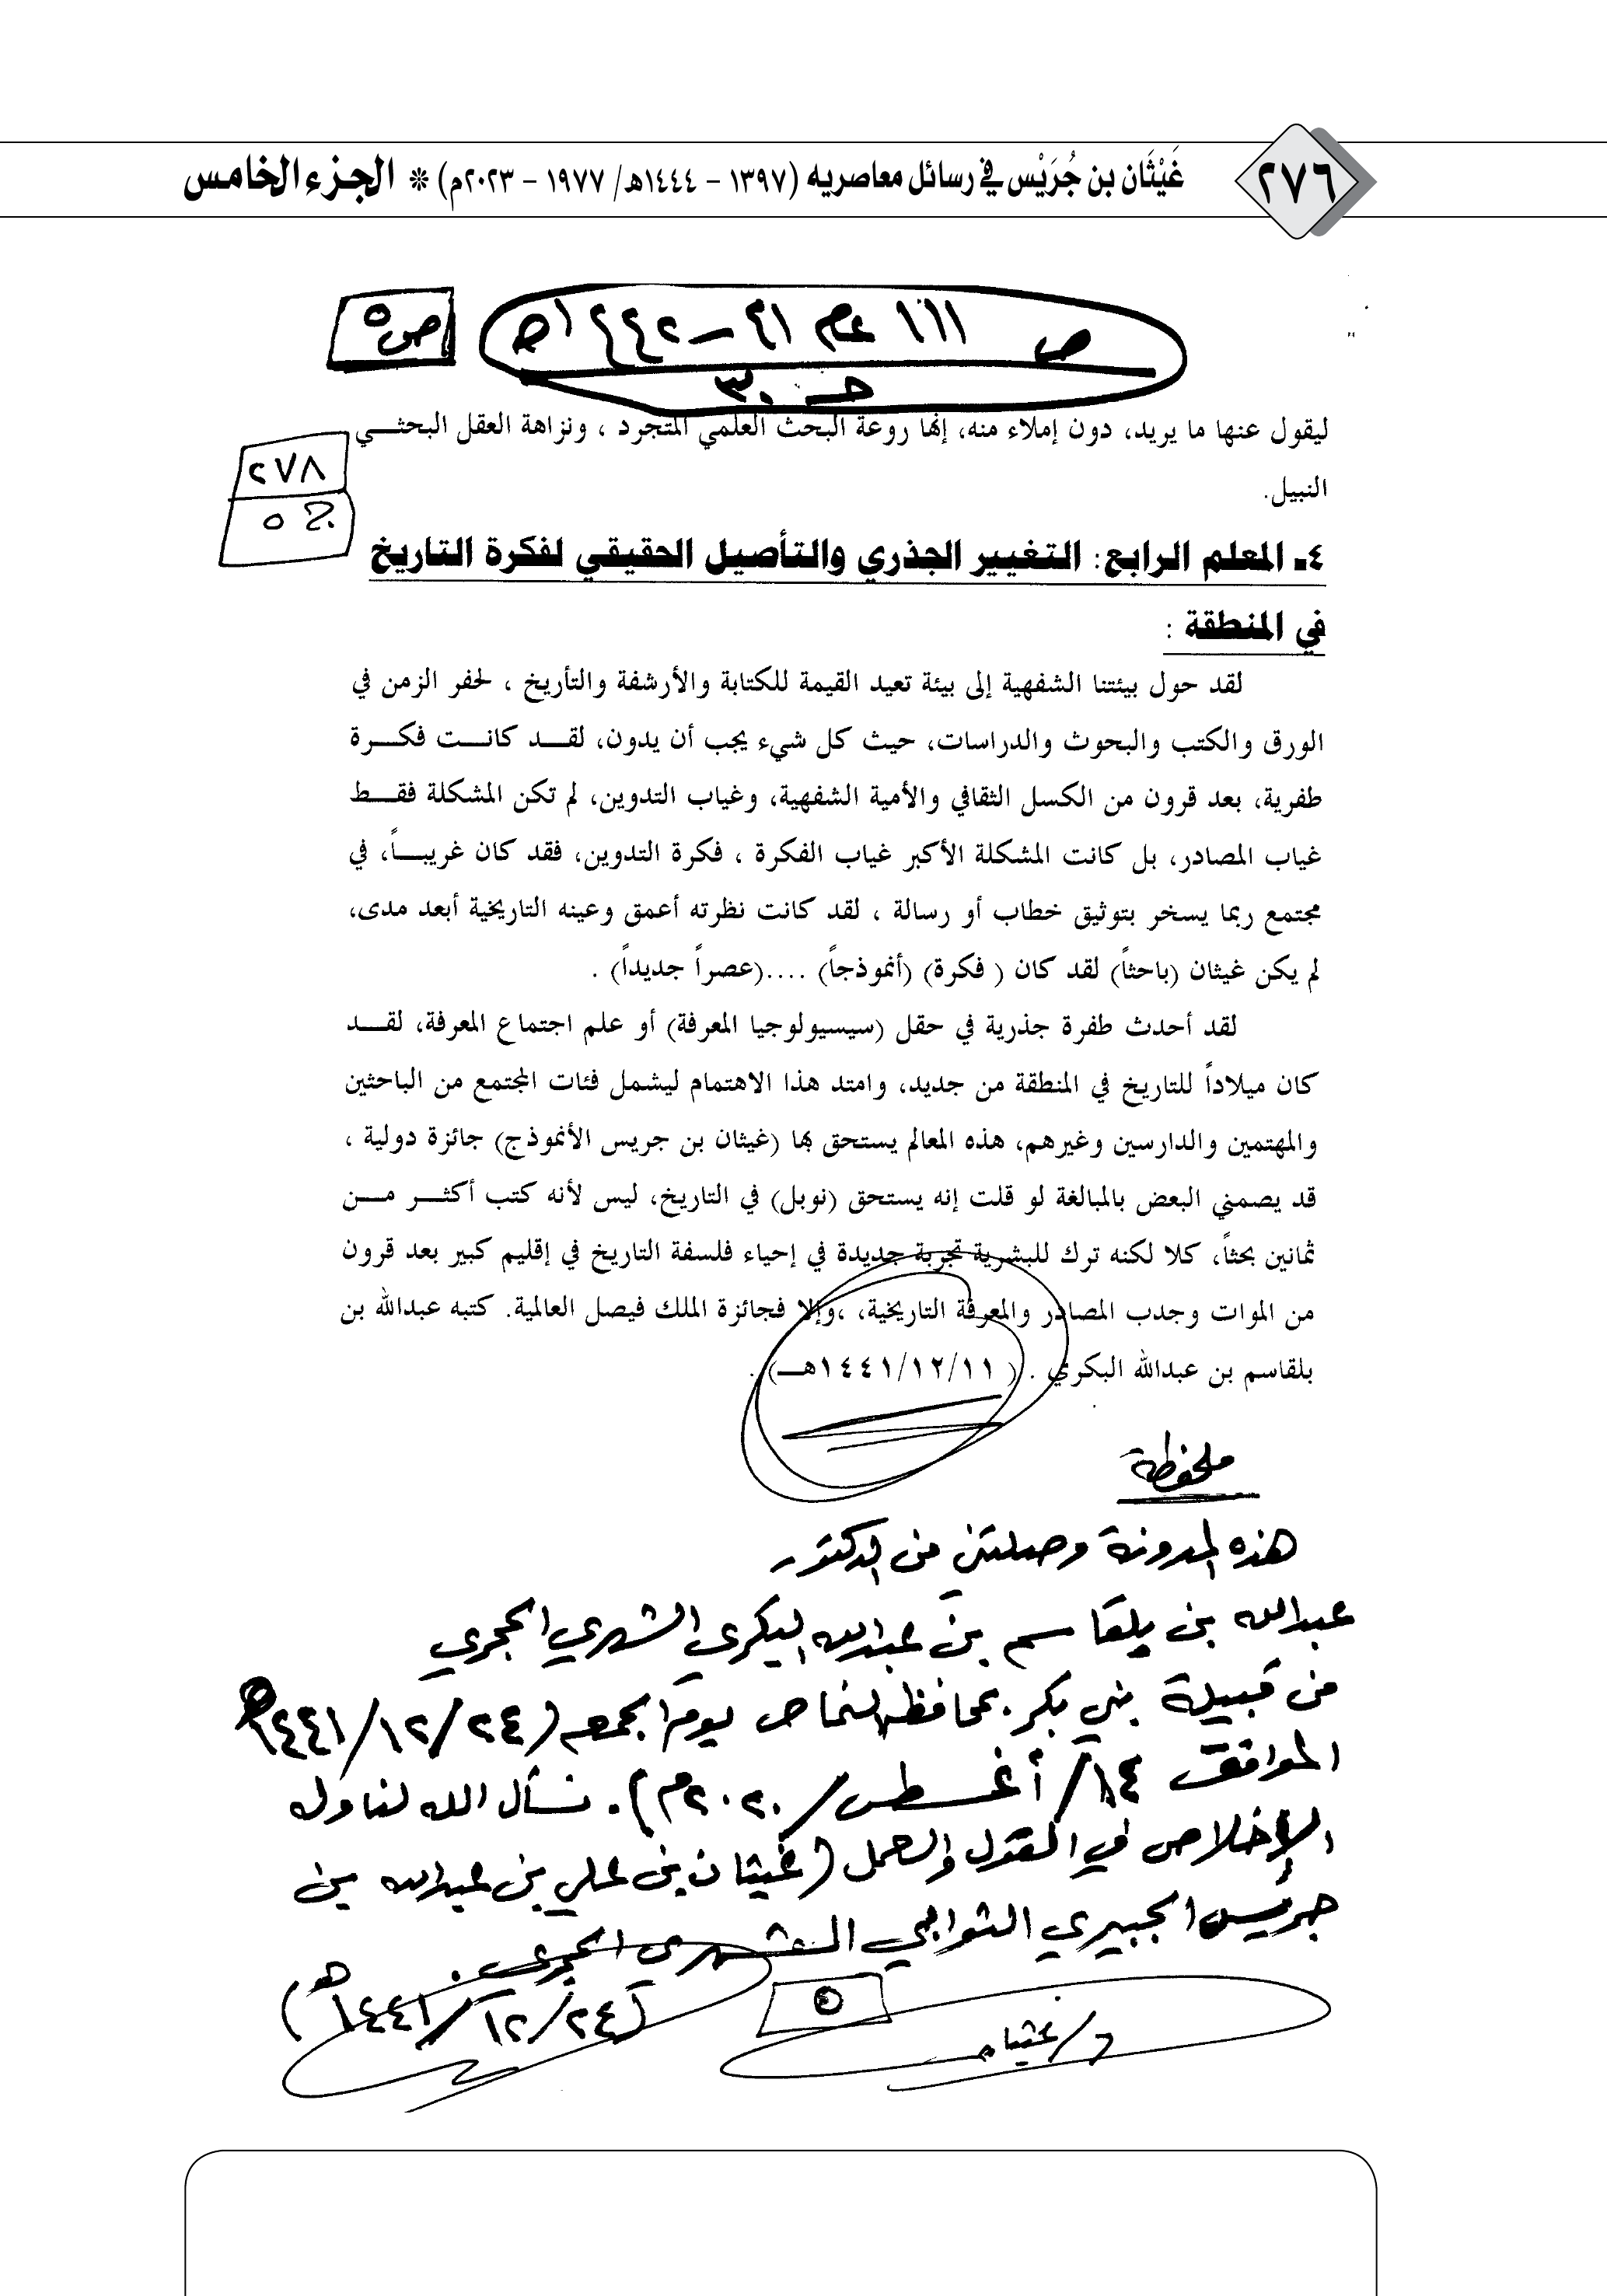 ٢٧٦
غَيْثَان بن جُرَيْس في رسائل معاصريه (١٣٩٧ - ١٤٤٤هـ/ ١٩٧٧ - ٢٠٢٣م) * الجزء الخامس
ص ١١١ عام ٤١ – ١٤٤٢هـ
حـ ٣٠
ص٥
ليقول عنها ما يريد، دون إملاء منه، إنها روعة البحث العلمي المتجرد ، ونزاهة العقل البحثي
٢٧٨
٥
النبيل.
٤ـ المعلم الرابع: التغيير الجذري والتأصيل الحقيقي لفكرة التاريخ
في المنطقة :
لقد حول بيئتنا الشفهية إلى بيئة تعيد القيمة للكتابة والأرشفة والتأريخ ، لحفر الزمن في
الورق والكتب والبحوث والدراسات، حيث كل شيء يجب أن يدون، لقد كانت فكرة
طفرية، بعد قرون من الكسل الثقافي والأمية الشفهية، وغياب التدوين، لم تكن المشكلة فقط
غياب المصادر، بل كانت المشكلة الأكبر غياب الفكرة ، فكرة التدوين، فقد كان غريباً، في
مجتمع ربما يسخر بتوثيق خطاب أو رسالة ، لقد كانت نظرته أعمق وعينه التاريخية أبعد مدى،
لم يكن غيثان (باحثاً) لقد كان ( فكرة) (أنموذجاً) ....(عصراً جديداً) .
لقد أحدث طفرة جذرية في حقل (سيسيولوجيا المعرفة) أو علم اجتماع المعرفة، لقد
كان ميلاداً للتاريخ في المنطقة من جديد، وامتد هذا الاهتمام ليشمل فئات المجتمع من الباحثين
والمهتمين والدارسين وغيرهم، هذه المعالم يستحق بها (غيثان بن جريس الأنموذج) جائزة دولية ،
قد يصمني البعض بالمبالغة لو قلت إنه يستحق (نوبل) في التاريخ، ليس لأنه كتب أكثر من
ثمانين بحثاً، كلا لكنه ترك للبشرية تجربة جديدة في إحياء فلسفة التاريخ في إقليم كبير بعد قرون
من الموات وجدب المصادر والمعرفة التاريخية، ،وإلا فجائزة الملك فيصل العالمية. كتبه عبدالله بن
بلقاسم بن عبدالله البكري . ( ١٤٤١/١٢/١١هـ) .
ملحوظة
هذه المدونة وصلتني من الدكتور
عبدالله بن بلقاسم بن عبدالله البكري الشهري الحجري
من قبيلة بني بكر. بمحافظة النماص يوم الجمعه (١٤٤١/١٢/٢٤هـ
الموافق ١٤/أغسطس/٢٠٢٠م). نسأل الله لنا وله
الإخلاص في القول والعمل (غيثان بن علي بن عبدالله بن
جريس الجبيري الثوابي الشهري الحجري.
(١٤٤١/١٢/٢٤هـ)
٥
د/غيثان